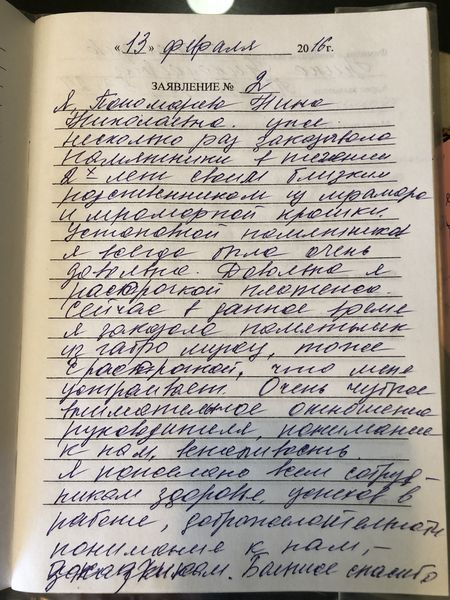 «13» февраля 2016 г.
ЗАЯВЛЕНИЕ № 2
Я, Пономарёва Нина
Николаевна. уже
несколько раз заказывала
памятники в течении
2х лет своим близким
родственникам из мрамора
и мраморной крошки.
Установкой памятника
я всегда была очень
довольна. Довольна я
рассрочкой платежа.
Сейчас в данное время
я заказала памятник
из габро мужу, тоже
с рассрочкой, что меня
устраивает. Очень чуткое
внимательное отношение
руководителя, понимание
к нам, вежливость.
Я пожелаю всем сотруд-
никам здоровье, успехов в
работе, доброжелательности
понимание к нам,-
заказчикам. Большое спасибо